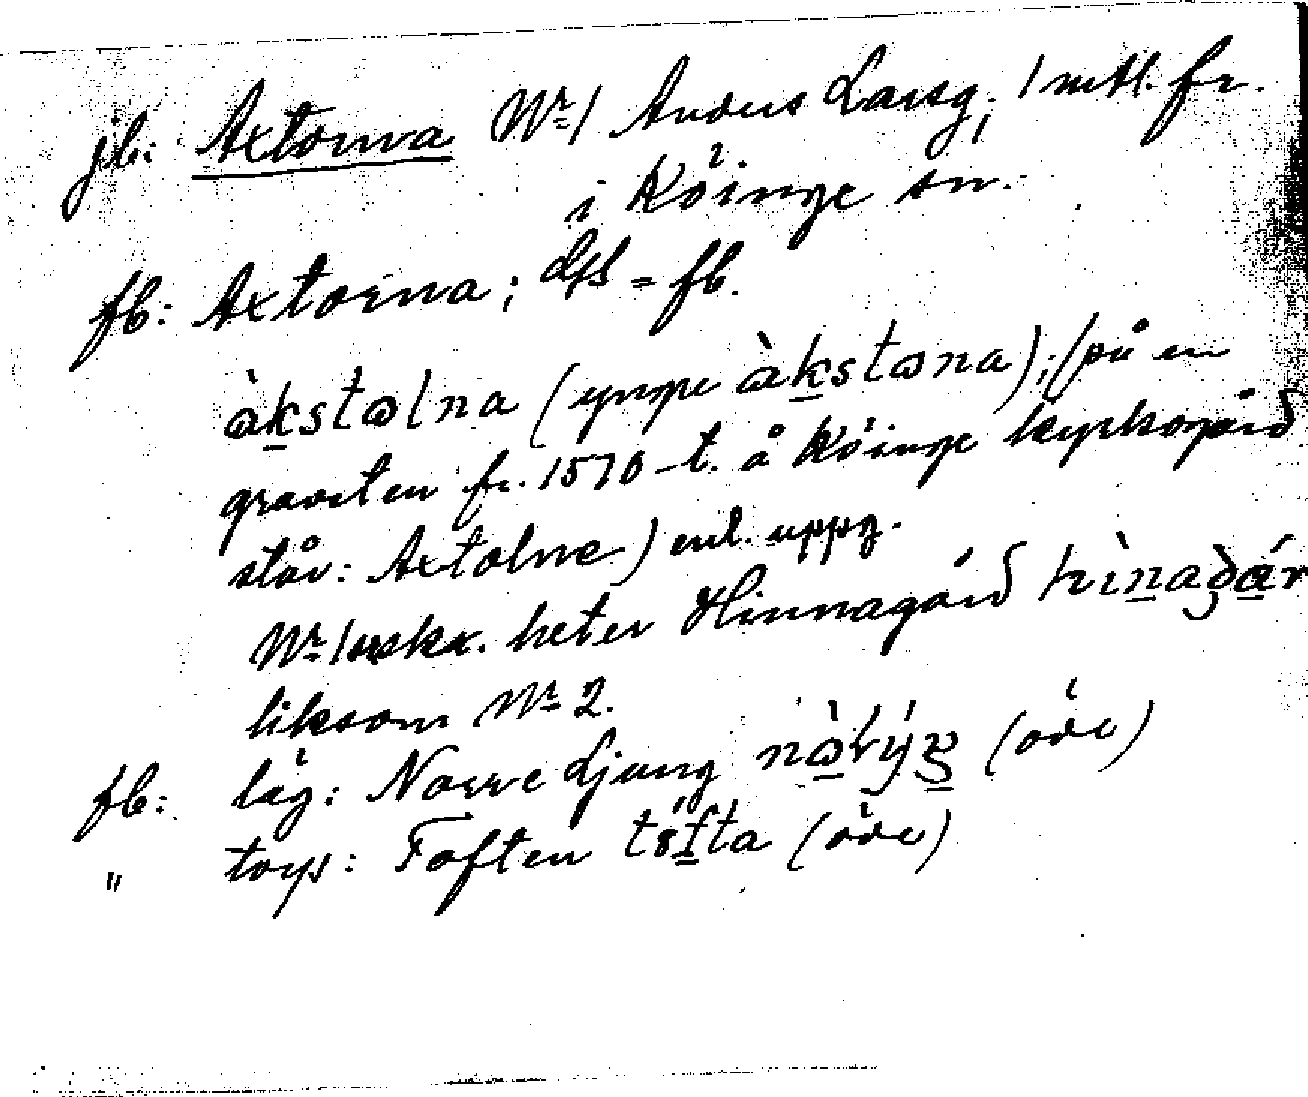 jb: Axtorna Nr 1 Anders Larsg; 1 mtl. fr.
i Köinge sn.
fb: Axtorna; dfs = fb.
àkstɷlna (yngre àkstɷna); (på en
gravsten fr. 1570-t. å Köinge kyrkogård
står: Axtolne) enl. uppg.
Nr 1 heter Hinnagård
liksom Nr 2.
fb: läg: Norre Ljung (öde)
" torp: Toften tófta (öde)